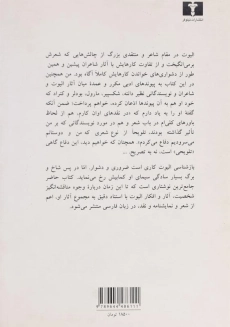 انتشارات نیلوفر
الیوت در مقام شاعر و منتقدی بزرگ از چالش‌هایی که شعرش
برمی‌انگیخت و از تفاوت کارهایش با آثار شاعران پیشین و همین
طور از دشواری‌های خواندن کارهایش کاملاً آگاه بود. من همچنین
به پیوندهای ادبی مکرر و عمدهٔ میان آثار الیوت و
شاعران و نویسندگانی نظیر دانته، شکسپیر، مارول، بودلر و کنراد که
خود او هم به آن پیوندها اذعان کرده، خواهم پرداخت؛ ضمن آنکه
گفتهٔ او را به یاد دارم که «در نقدهای اوان کارم، هم از لحاظ
نظرهای کلی‌ام در باب شعر و هم در مورد نویسندگانی که بر من
تأثیر گذاشته بودند، تلویحاً از نوع شعری که من و دوستانم
می‌سرودیم دفاع می‌کردم»؛ همچنان که خواهیم دید، این دفاع گاهی
«تلویحی» است، نه به تصریح...
بازشناسی الیوت کاری است ضروری و دشوار، اما در پس شاخ و
برگ بسیار سادگی سیمای او کمابیش رخ می‌نماید. کتاب حاضر
جامع‌ترین نوشتاری است که تا این زمان دربارهٔ وجوه مناقشه‌انگیز
شخصیت، آثار و افکار الیوت با استناد دقیق به مجموع آثار او، اهم
از شعر و نمایشنامه و نقد، در زبان فارسی منتشر می‌شود.
تومان